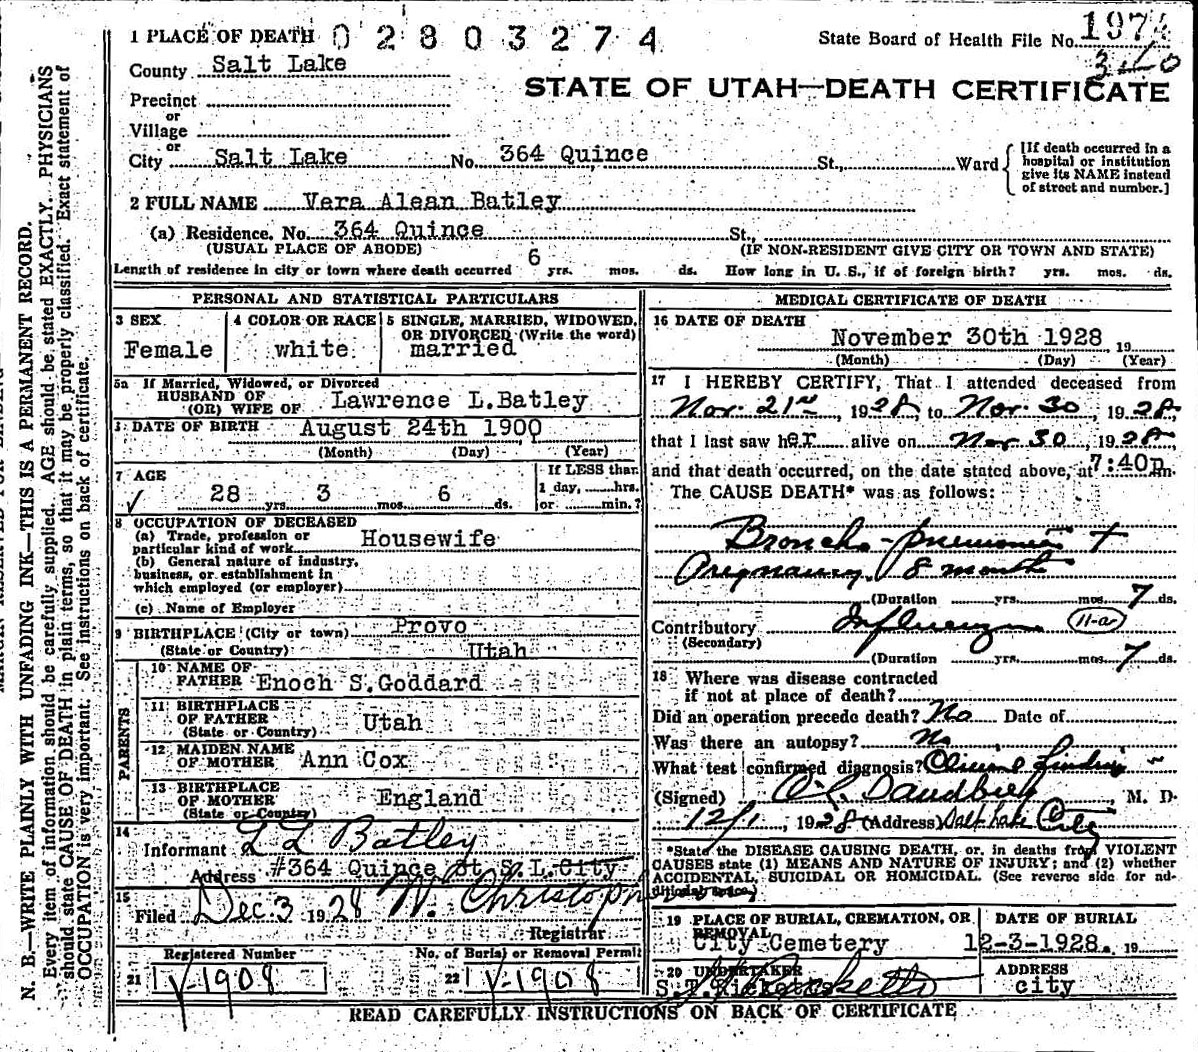 1 PLACE OF DEATH 02803274
State Board of Health File No. 1974
340
County Salt Lake
STATE OF UTAH—DEATH CERTIFICATE
Precinct
or
Village
or
City Salt Lake No. 364 Quince St., Ward
[If death occurred in a hospital or institution give its NAME instead of street and number.]
2 FULL NAME Vera Alean Batley
(a) Residence. No. 364 Quince St.,
(USUAL PLACE OF ABODE) (IF NON-RESIDENT GIVE CITY OR TOWN AND STATE)
Length of residence in city or town where death occurred 6 yrs. mos. ds. How long in U. S., if of foreign birth? yrs. mos. ds.
PERSONAL AND STATISTICAL PARTICULARS
3 SEX
Female
4 COLOR OR RACE
white
5 SINGLE, MARRIED, WIDOWED, OR DIVORCED (Write the word)
married
5a If Married, Widowed, or Divorced
HUSBAND OF
(OR) WIFE OF Lawrence L.Batley
DATE OF BIRTH August 24th 1900
(Month) (Day) (Year)
7 AGE
28 yrs. 3 mos. 6 ds.
If LESS than
1 day, hrs.
or min.?
8 OCCUPATION OF DECEASED
(a) Trade, profession or
particular kind of work Housewife
(b) General nature of industry,
business, or establishment in
which employed (or employer)
(c) Name of Employer
9 BIRTHPLACE (City or town) Provo
(State or Country) Utah
PARENTS
10 NAME OF
FATHER Enoch S.Goddard
11 BIRTHPLACE
OF FATHER Utah
(State or Country)
12 MAIDEN NAME
OF MOTHER Ann Cox
13 BIRTHPLACE
OF MOTHER England
(State or Country)
14
Informant L L Batley
Address #364 Quince st S.L.City
15
Filed Dec. 3 1928 W. Christoph
Registrar
Registered Number
21 V-1908
No. of Burial or Removal Permit
22 V-1908
MEDICAL CERTIFICATE OF DEATH
16 DATE OF DEATH
November 30th 1928 19
(Month) (Day) (Year)
17 I HEREBY CERTIFY, That I attended deceased from
Nov. 21st, 1928 to Nov. 30, 1928
that I last saw her alive on Nov 30, 1928
and that death occurred, on the date stated above, at 7:40p m.
The CAUSE DEATH* was as follows:
Broncho-pneumonia +
Pregnancy 8 month
(Duration yrs. mos. 7 ds.
Contributory Influenza 11-a
(Secondary)
(Duration yrs. mos. 7 ds.
18 Where was disease contracted
if not at place of death?
Did an operation precede death? No Date of
Was there an autopsy? No
What test confirmed diagnosis? Clinical findings
(Signed) M. D.
12/1, 1928 (Address) Salt Lake City
*State the DISEASE CAUSING DEATH, or, in deaths from VIOLENT
CAUSES state (1) MEANS AND NATURE OF INJURY; and (2) whether
ACCIDENTAL, SUICIDAL OR HOMICIDAL. (See reverse side for additional space.)
19 PLACE OF BURIAL, CREMATION, OR REMOVAL
City Cemetery
DATE OF BURIAL
12-3-1928. 19
20 UNDERTAKER
S.T.Ricketts
ADDRESS
city
READ CAREFULLY INSTRUCTIONS ON BACK OF CERTIFICATE
N. B.—WRITE PLAINLY WITH UNFADING INK—THIS IS A PERMANENT RECORD.
Every item of information should be carefully supplied. AGE should be stated EXACTLY. PHYSICIANS
should state CAUSE OF DEATH in plain terms, so that it may be properly classified. Exact statement of
OCCUPATION is very important. See instructions on back of certificate.